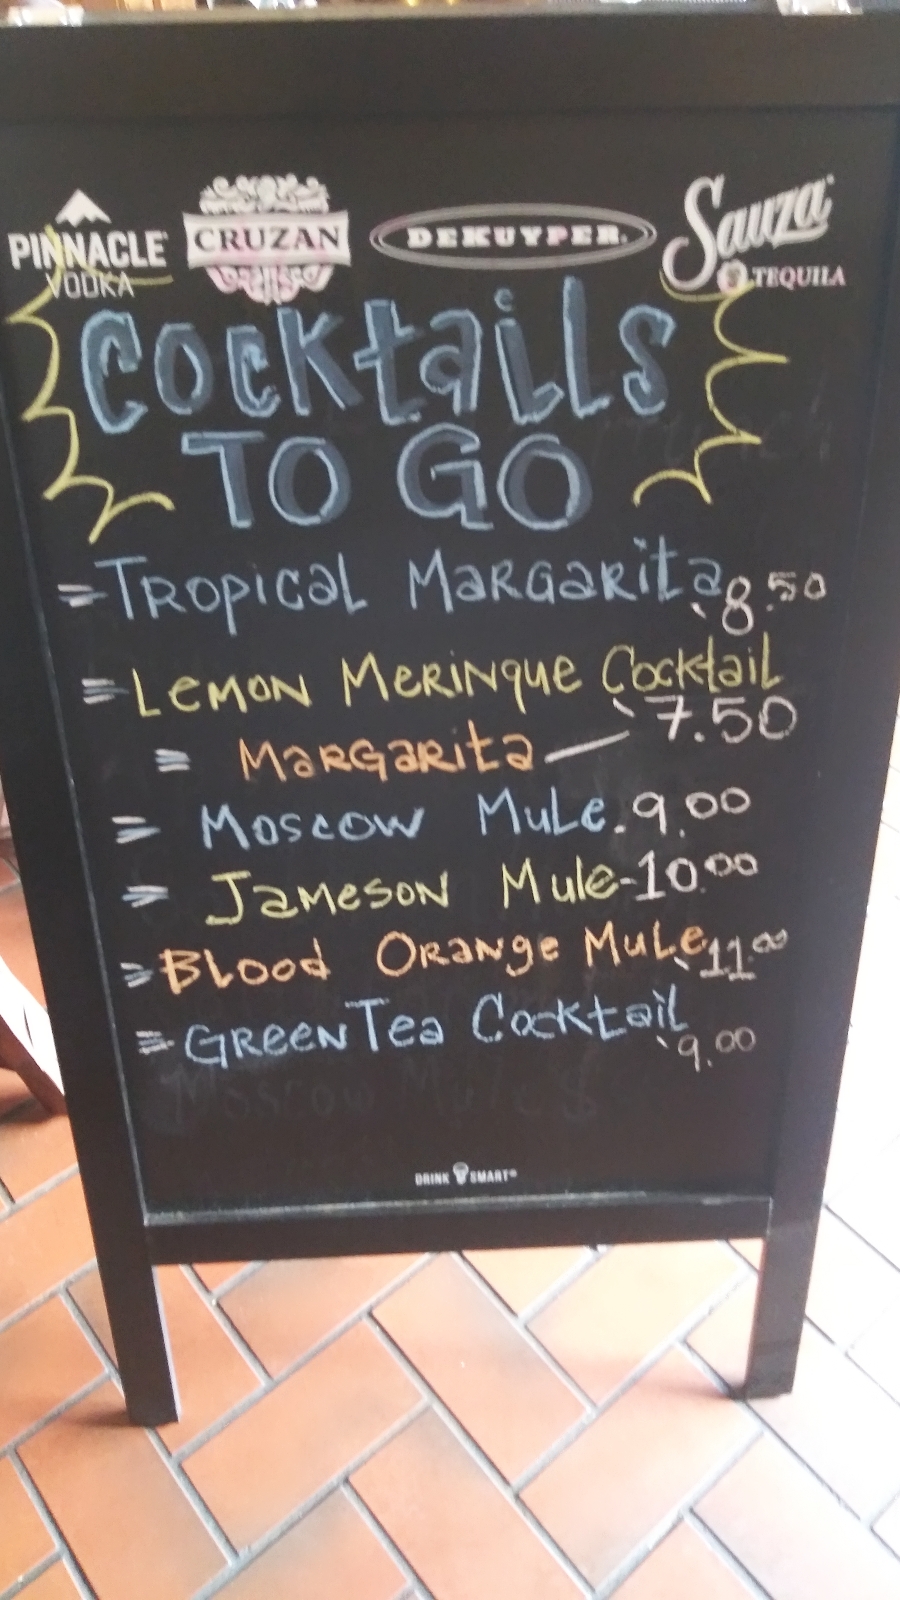 PINNACLE VODKA CRUZAN DEKUYPER Sauza TEQUILA
Cocktails
TO GO
= Tropical Margarita 8.50
= Lemon Merinque Cocktail
7.50
= Margarita —
= Moscow Mule. 9.00
= Jameson Mule - 10.00
= Blood Orange Mule 11.00
= Green Tea Cocktail
9.00
Moscow Mule $
DRINK SMART